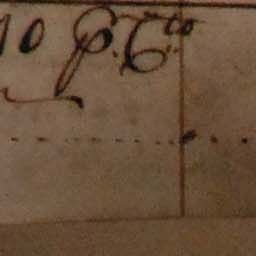 10 p. C.to